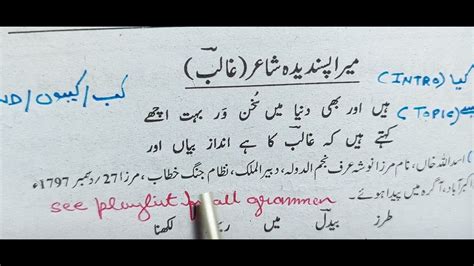 میرا پسندیدہ شاعر (غالبؔ)
کیا (INTRO)
کب / کیوں / ND
ہیں اور بھی دنیا میں سُخن وَر بہت اچھے
(TOPIC)
کہتے ہیں کہ غالبؔ کا ہے اندازِ بیاں اور
اسد اللہ خاں، نام مرزا نوشہ عرف نجم الدولہ، دبیر الملک، نظام جنگ خطاب، مرزا 27/دسمبر 1797ء
اکبر آباد، آگرہ میں پیدا ہوئے۔
see playlist all grammer
طرزِ بیدلؔ میں ریختہ لکھنا